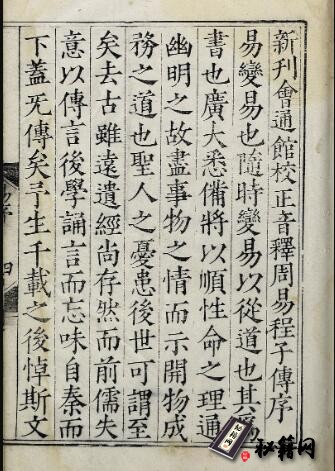 新刊會通館校正音釋周易程子傳序
易變易也隨時變易以從道也其為
書也廣大悉備將以順性命之理通
幽明之故盡事物之情而示開物成
務之道也聖人之憂患後世可謂至
矣去古雖遠遺經尚存然而前儒失
意以傳言後學誦言而忘味自秦而
下蓋无傳矣予生千載之後悼斯文
秘籍网